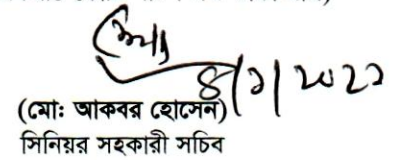 ৪/১/২০২২
(মোঃ আকবর হোসেন)
সিনিয়র সহকারী সচিব